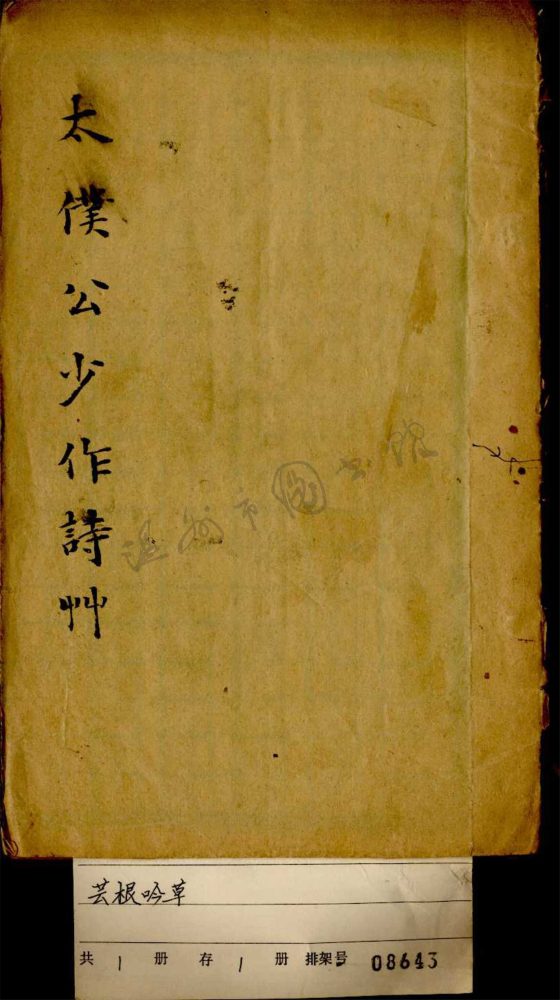 太僕公少作詩艸
温州市图书馆
芸根吟草
共 1 册 存 1 册 排架号 08643